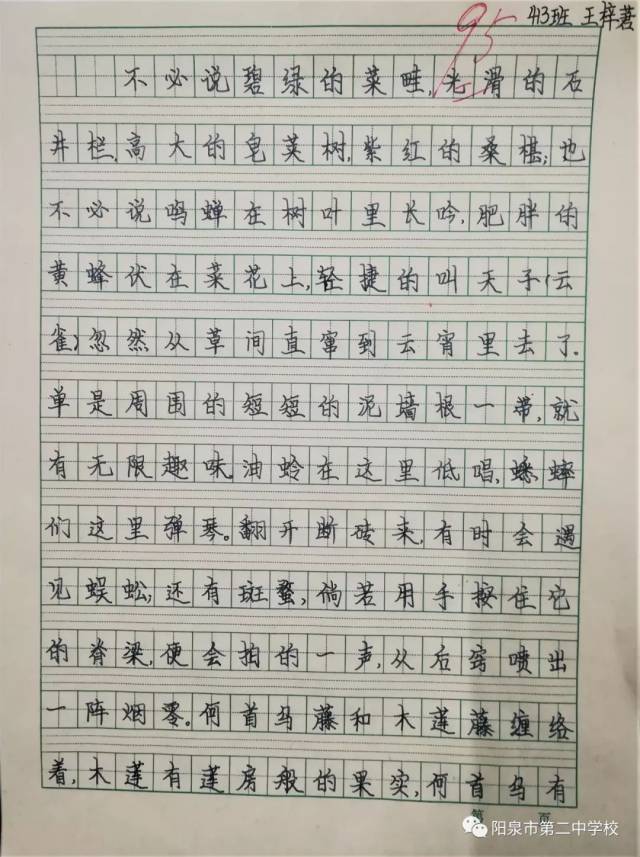 95 413班 王梓茗
不必说碧绿的菜畦,光滑的石
井栏,高大的皂荚树,紫红的桑椹;也
不必说鸣蝉在树叶里长吟,肥胖的
黄蜂伏在菜花上,轻捷的叫天子(云
雀)忽然从草间直窜到云宵里去了.
单是周围的短短的泥墙根一带,就
有无限趣味.油蛉在这里低唱,蟋蟀
们这里弹琴。翻开断砖来,有时会遇
见蜈蚣;还有斑蝥,倘若用手按住它
的脊梁,便会拍的一声,从后窍喷出
一阵烟雾。何首乌藤和木莲藤缠络
着,木莲有莲房般的果实,何首乌有
第 页
阳泉市第二中学校